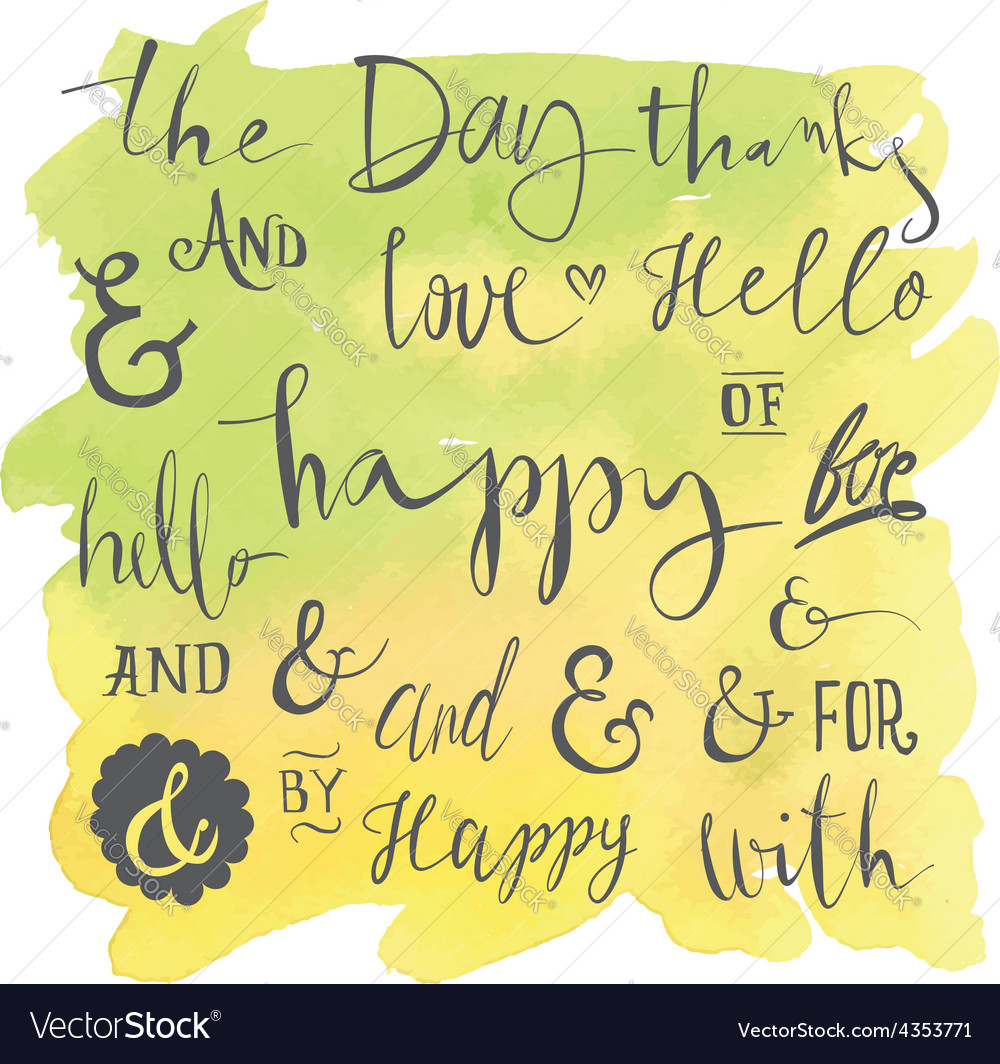 the Day thanks
& AND love Hello
OF
happy
hello
&
AND & and & & FOR
& BY Happy with
VectorStock®
VectorStock.com/4353771